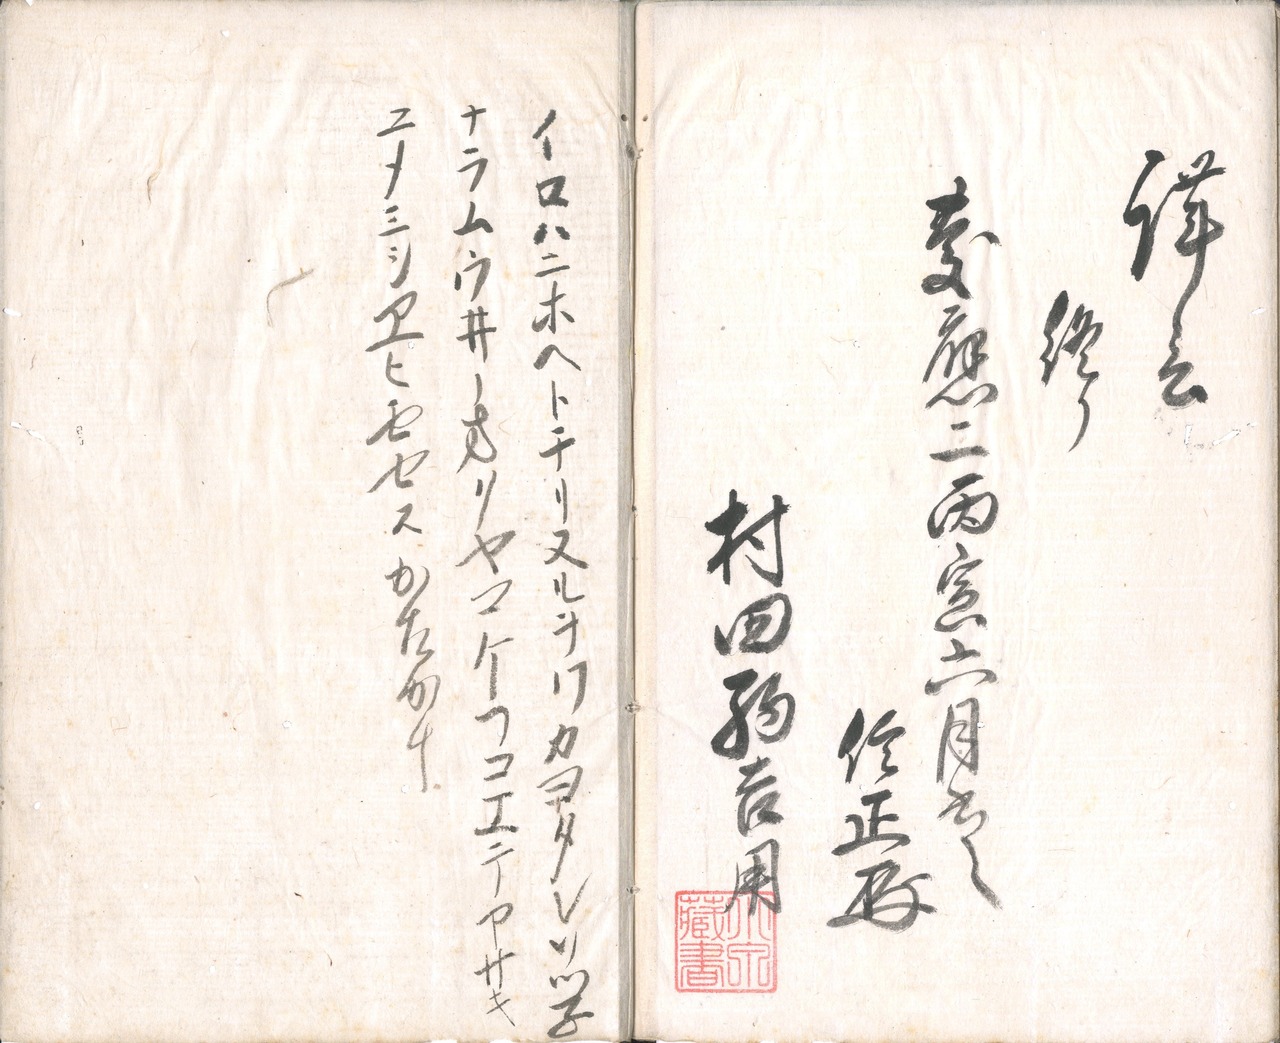 謹言
終り
慶應二丙寅六月書之
信正
村田駒吉用
藏書
イロハニホヘトチリヌルヲワカヨタレソツ子
ナラムウ井ノオクヤマケフコエテアサキ
ユメミシヱヒモセス